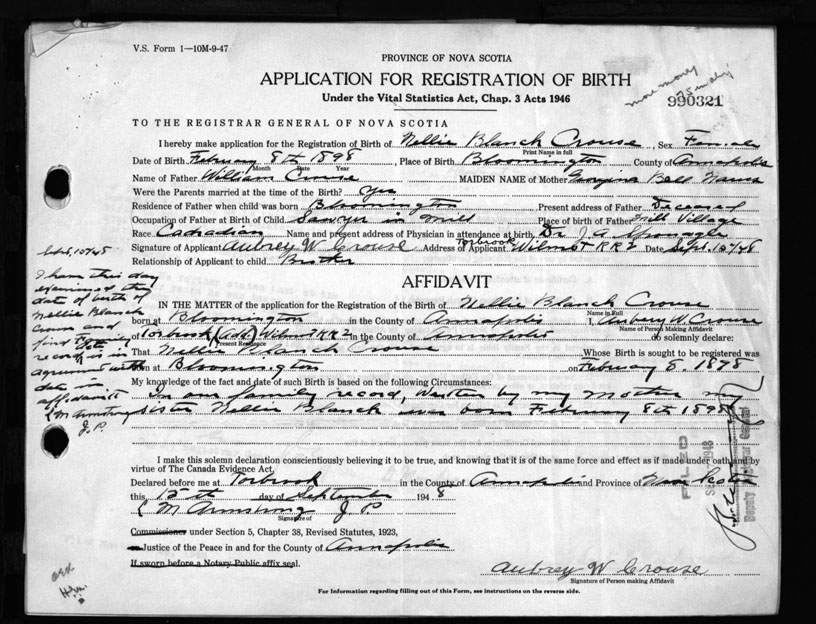 V.S. Form 1—10M-9-47
PROVINCE OF NOVA SCOTIA
APPLICATION FOR REGISTRATION OF BIRTH
Under the Vital Statistics Act, Chap. 3 Acts 1946
more money
990321
TO THE REGISTRAR GENERAL OF NOVA SCOTIA
I hereby make application for the Registration of Birth of Nellie Blanck Crouse, Sex Female
Print Name in full
Date of Birth February 8th 1898, Place of Birth Bloomington County of Annapolis
Month Date Year
Name of Father William Crouse MAIDEN NAME of Mother Georgina Bell
Were the Parents married at the time of the Birth? Yes
Residence of Father when child was born Bloomington Present address of Father Deceased
Occupation of Father at Birth of Child Sawyer in Mill Place of birth of Father Mill Village
Race Canadian Name and present address of Physician in attendance at birth Dr J. A. Sponagle
Signature of Applicant Aubrey W Crouse Address of Applicant Torbrook Wilmot RR2 Date Sept. 15/48
Relationship of Applicant to child Brother
AFFIDAVIT
IN THE MATTER of the application for the Registration of the Birth of Nellie Blanck Crouse
Name in Full
born at Bloomington in the County of Annapolis I, Aubrey W. Crouse
Name of Person Making Affidavit
of Torbrook (Add) Wilmot RR2 In the County of Annapolis do solemnly declare:
Present Residence
That Nellie Blanck Crouse Whose Birth is sought to be registered was
born at Bloomington on February 8. 1898
My knowledge of the fact and date of such Birth is based on the following Circumstances:
In our family record, written by my Mother my
sister Nellie Blanck was born February 8th 1898
I make this solemn declaration conscientiously believing it to be true, and knowing that it is of the same force and effect as if made under oath and by
virtue of The Canada Evidence Act.
Declared before me at Torbrook in the County of Annapolis and Province of Nova Scotia
this 15th day of September 1948
M Armstrong J P.
Signature of
Commissioner under Section 5, Chapter 38, Revised Statutes, 1923,
Justice of the Peace in and for the County of Annapolis
If sworn before a Notary Public affix seal.
Aubrey W Crouse
Signature of Person making Affidavit
For Information regarding filling out of this Form, see instructions on the reverse side.
I have this day
examined the
date of birth of
Nellie Blanck
Crouse and
find
record is in
agreement with
date in
affidavit
M Armstrong
J. P.
FILED
1948
Deputy Registrar General